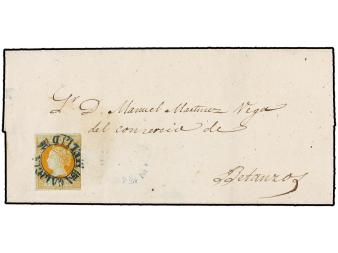 Sr. D. Manuel Martinez Vega
del comercio de
Betanzos